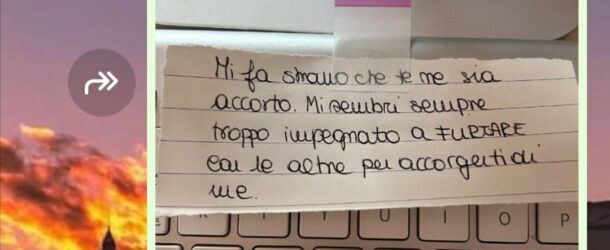 Mi fa strano che te ne sia
accorto. Mi sembri sempre
troppo impegnato a FLIRTARE
con le altre per accorgerti di
me.
I
Y
U
I
O
P